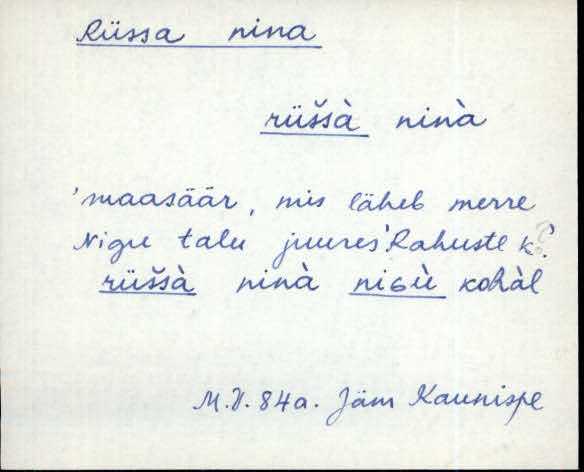 Rüssa nina
rüšsà ninà
'maasäär, mis läheb merre
Nigu talu juures' Rahuste k.?
rüšsà ninà niGù kohàl
M.V. 84a. Jäm Kaunispe